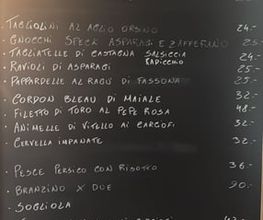 TAGLIOLINI AL AGLIO ORSINO 24.-
• GNOCCHI SPECK ASPARAGI E ZAFFERANO 25.-
• TAGLIATELLE DI CASTAGNA SALSICCIA RADICCHIO 24.-
• RAVIOLI DI ASPARAGI 25.-
• PAPPARDELLE AL RAGÙ DI FASSONA 25.-
• CORDON BLEAU DI MAIALE 32.-
• FILETTO DI TORO AL PEPE ROSA 48.-
• ANIMELLE DI VITELLO AI CARCIOFI 32.-
• CERVELLA IMPANATE 32.-
• PESCE PERSICO CON RISOTTO 36.-
• BRANZINO X DUE 90.-
• SOGLIOLA